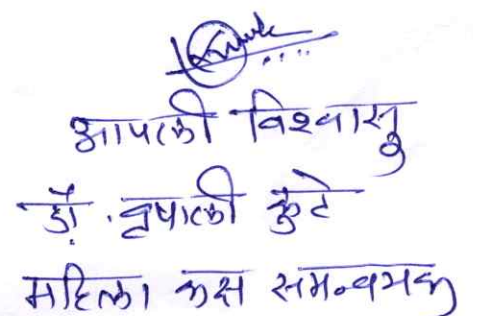 आपली विश्वासु
डॉ. वृषाली कुटे
महिला कक्ष समन्वयक